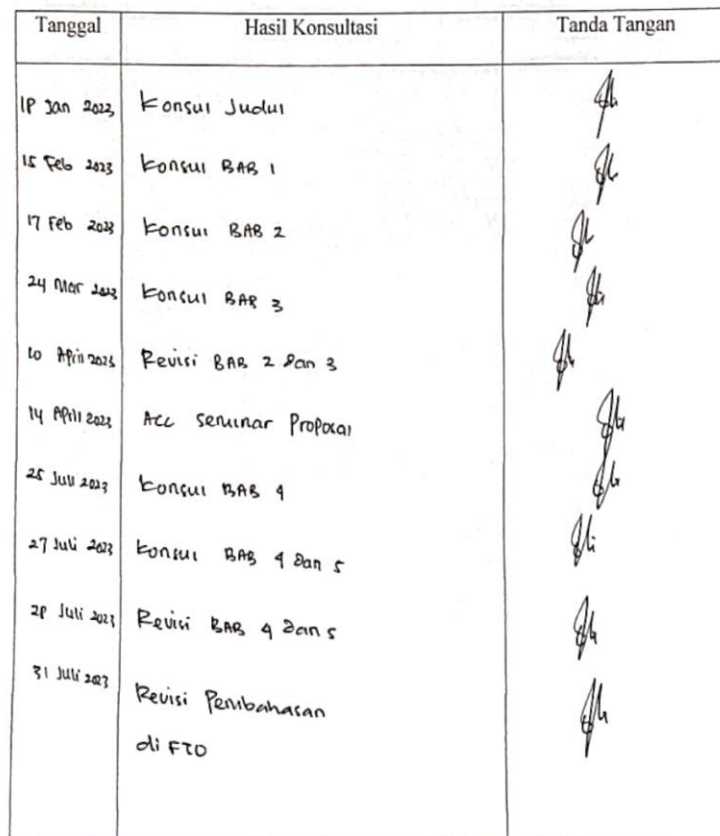 Tanggal Hasil Konsultasi Tanda Tangan
18 Jan 2023 Konsul Judul
15 Feb 2023 Konsul BAB 1
17 Feb 2023 Konsul BAB 2
24 Mar 2023 Konsul BAB 3
10 April 2023 Revisi BAB 2 dan 3
14 April 2023 Acc seminar Proposal
25 Juli 2023 Konsul BAB 4
27 Juli 2023 Konsul BAB 4 dan 5
28 Juli 2023 Revisi BAB 4 dan 5
31 Juli 2023 Revisi Pembahasan
di